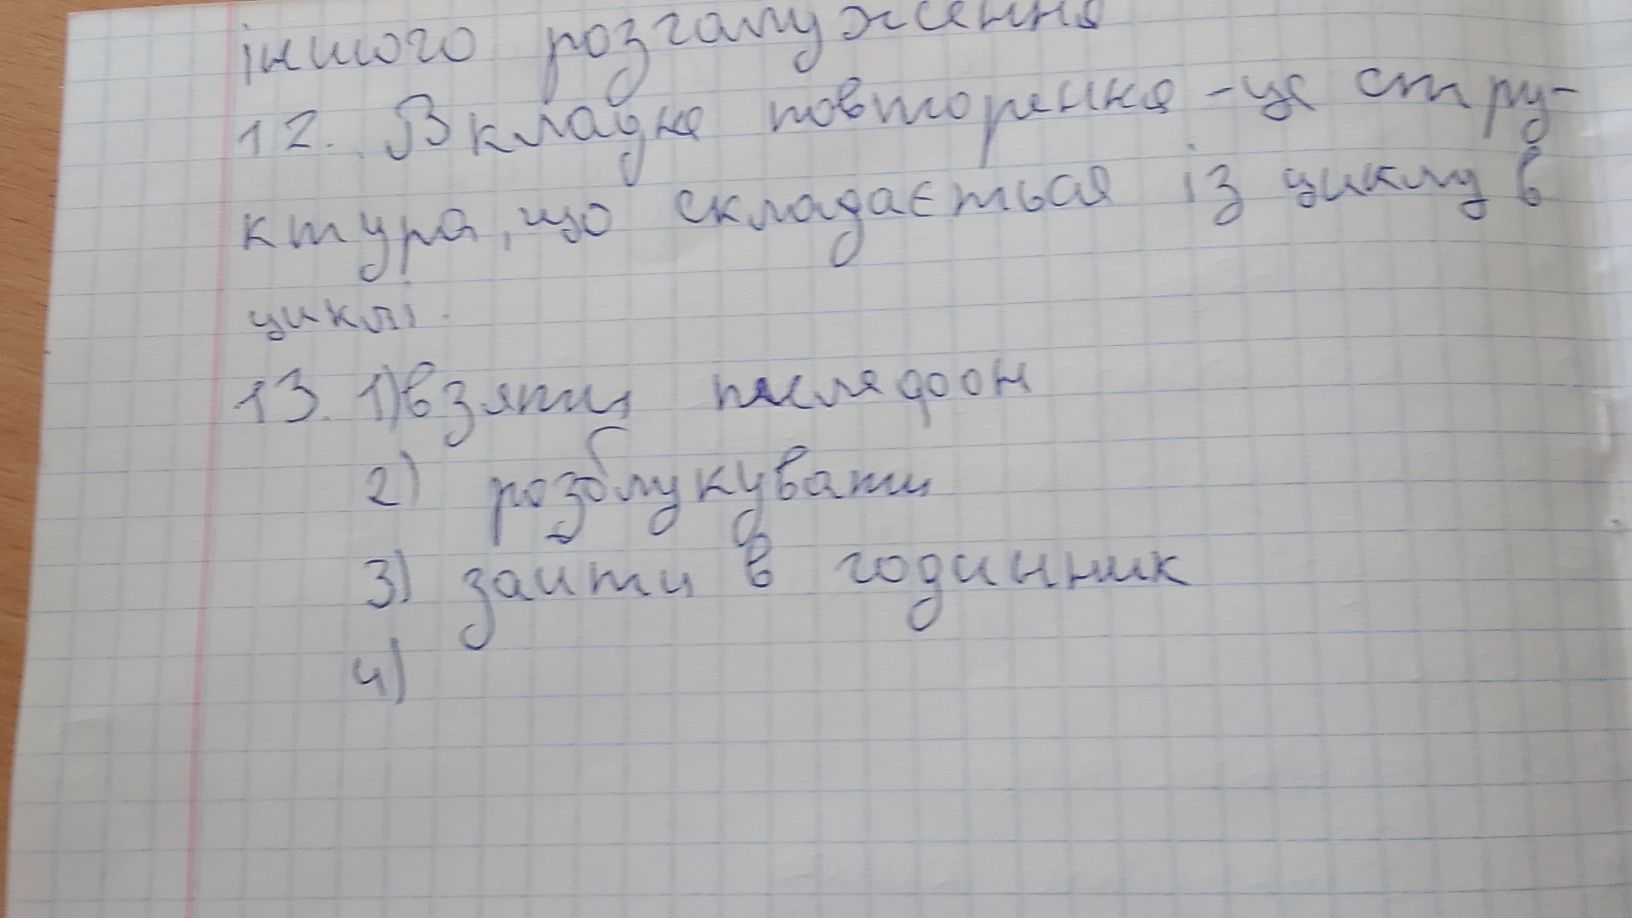 іншого розгалуження
12. Вкладне повторення - це стру-
ктура, що складаєтьая із циклу в
циклі.
13. 1) взяти тєлєдоон
2) розблукувати
3) заити в годинник
4)